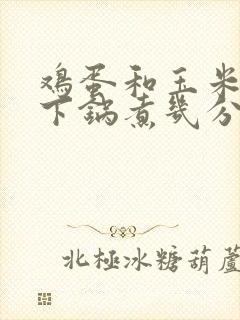 鸡蛋和玉米
下锅煮几分
北極冰糖葫蘆